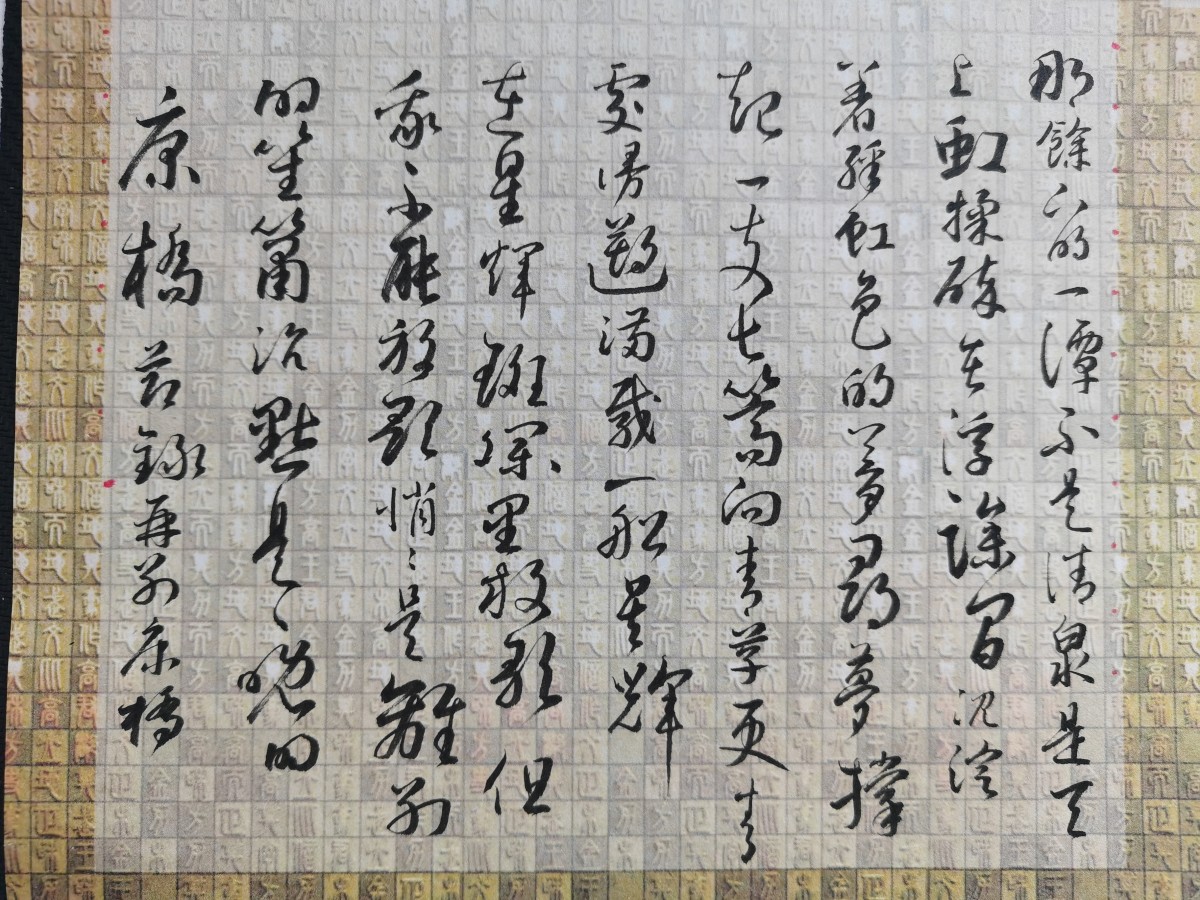 那餘下的一潭不是清泉是天
上虹揉碎在浮藻間沉淀
着經虹色的夢尋夢撐
起一支長篙向青草更青
處漫遡滿載一船星輝
在星輝斑斕里放歌但
我不能放歌悄〻是離別
的笙簫沉默是今晚的
康橋 節錄再別康橋